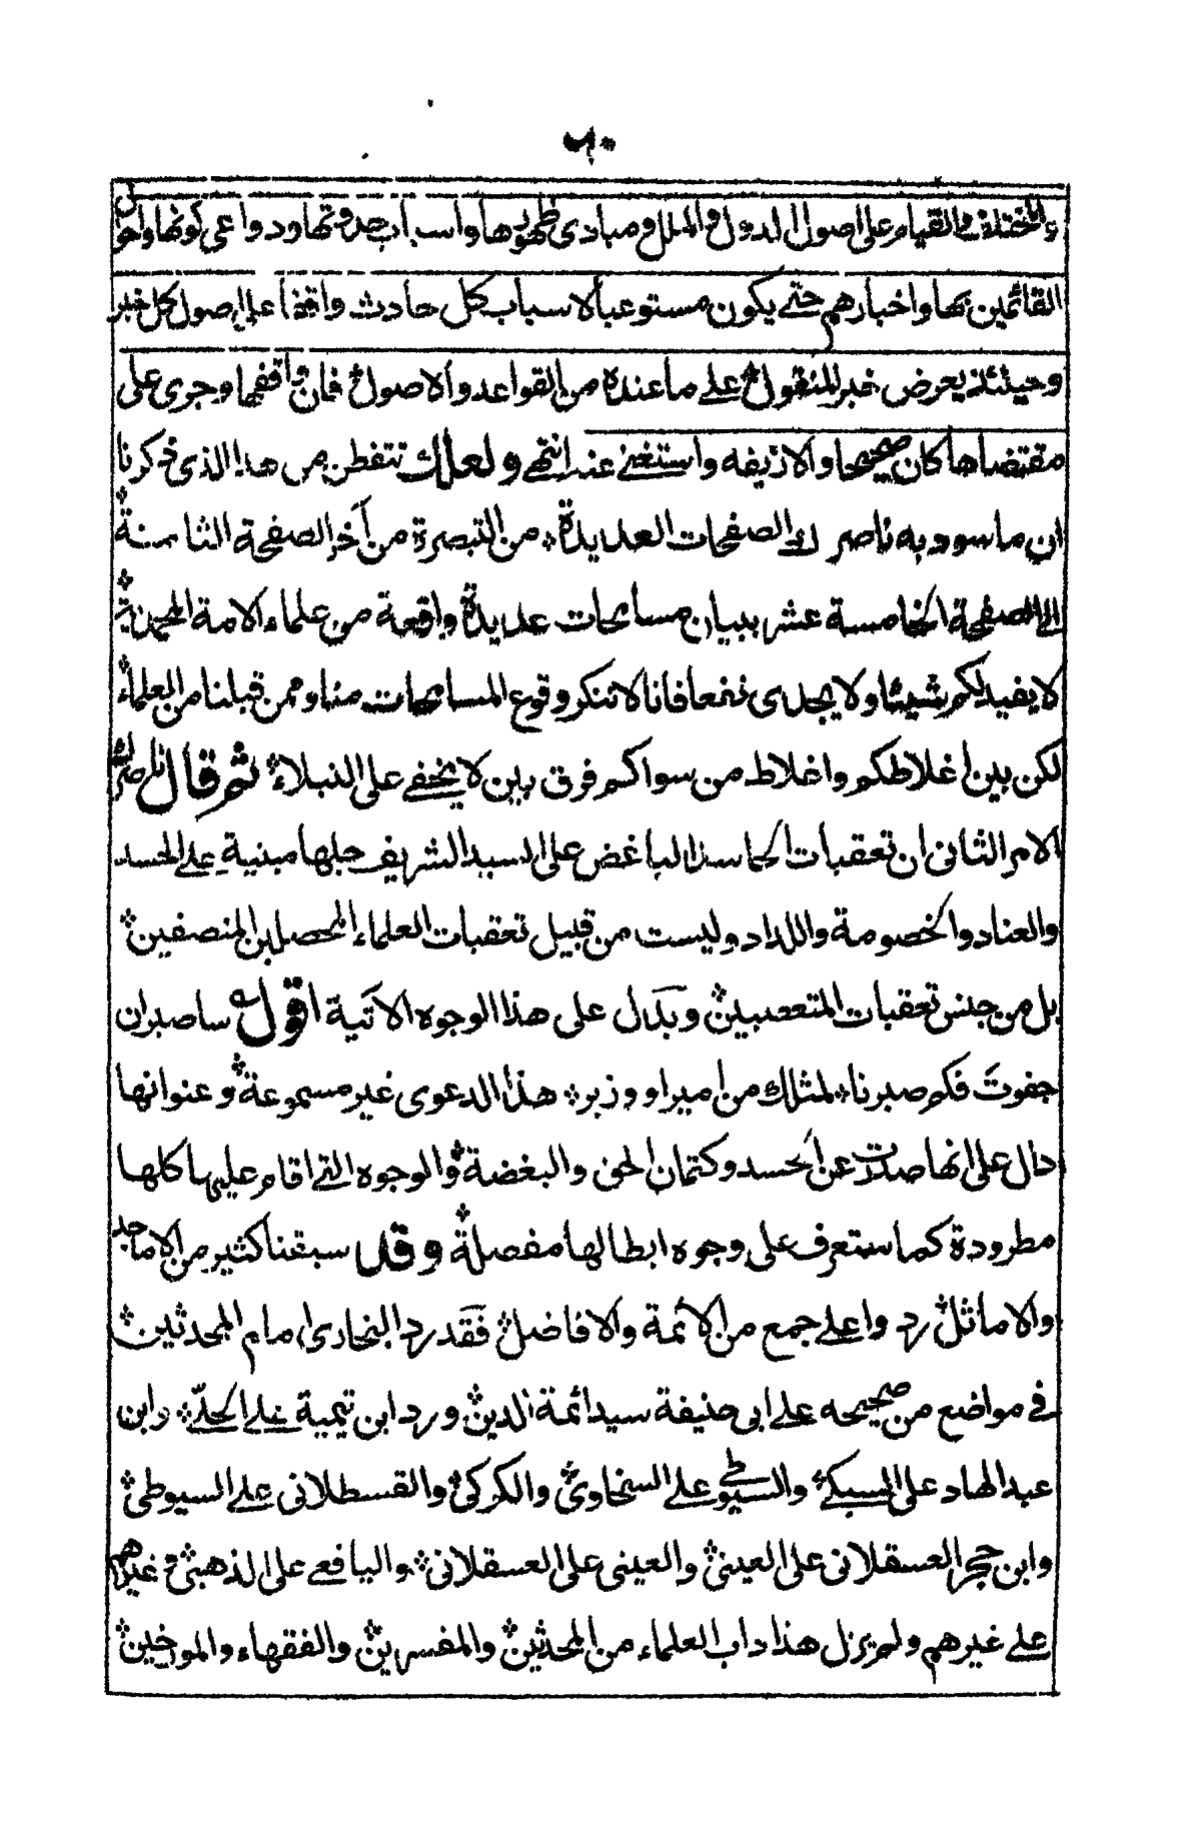 ٦٠
والمختلف والقيام على اصول الدول والملل ومبادى ظهورها واسباب حدوثها ودواعى كونها واحوال
القائمين بها واخبارهم حتے يكون مستوعبا لاسباب كل حادث واقفا على اصول كل خبر
وحينئذ يعرض خبر المنقول علے ما عنده من القواعد والاصول فان وافقها وجرى على
مقتضاها كان صحيحا والا زيفه واستغنے عنه انتهے ولعلك تتفطن من هذا الذى ذكرنا
ان ما سود به ناصرك الصفحات العديدة من التبصرة من آخر الصفحة الثامنة
الى الصفحة الخامسة عشر ببيان مسامحات عديدة واقعة من علماء الامة المحمدية
لا يفيدلكم شيئا ولا يجدى نفعا فانا لا ننكر وقوع المسامحات منا وممن قبلنا من العلماء
لكن بين اغلاطكم واغلاط من سواكم فرق بين لا يخفے على النبلاء ثم قال ناصرك
الامر الثانى ان تعقبات الحاسد الباغض على السيد الشريف جلها مبنية علے الحسد
والعناد والخصومة واللداد وليست من قبيل تعقبات العلماء المحصلين المنصفين
بل من جنس تعقبات المتعصبين ويدل على هذا الوجوه الآتية اقول ساصبر ان
جفوت فكم صبرنا لمثلك من امير او وزير هذا الدعوى غير مسموعة وعنوانها
دال على انها صدرت عن الحسد وكتمان الحق والبغضة والوجوه التے اقام عليها كلها
مطرودة كما ستعرف على وجوه ابطالها مفصلة وقد سبقنا كثير من الاماجد
والاماثل ردوا علے جمع من الائمة والافاضل فقد رد البخارى امام المحدثين
فى مواضع من صحيحه علے ابى حنيفة سيد ائمة الدين ورد ابن تيمية علے الحلّے وابن
عبد الهاد على السبكے والسيوطے علے السخاوى والكركى والقسطلانى علے السيوطى
وابن حجر العسقلانى على العينى والعينى على العسقلانى واليافعے على الذهبى وغيرهم
علے غيرهم ولم يزل هذا داب العلماء من المحدثين والمفسرين والفقهاء والمورخين